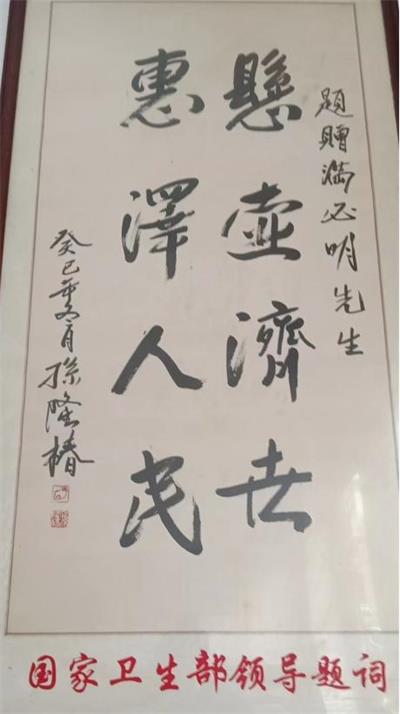 題贈满必明先生
懸壺濟世
惠澤人民
癸巳年冬月孫隆椿
国家卫生部领导题词